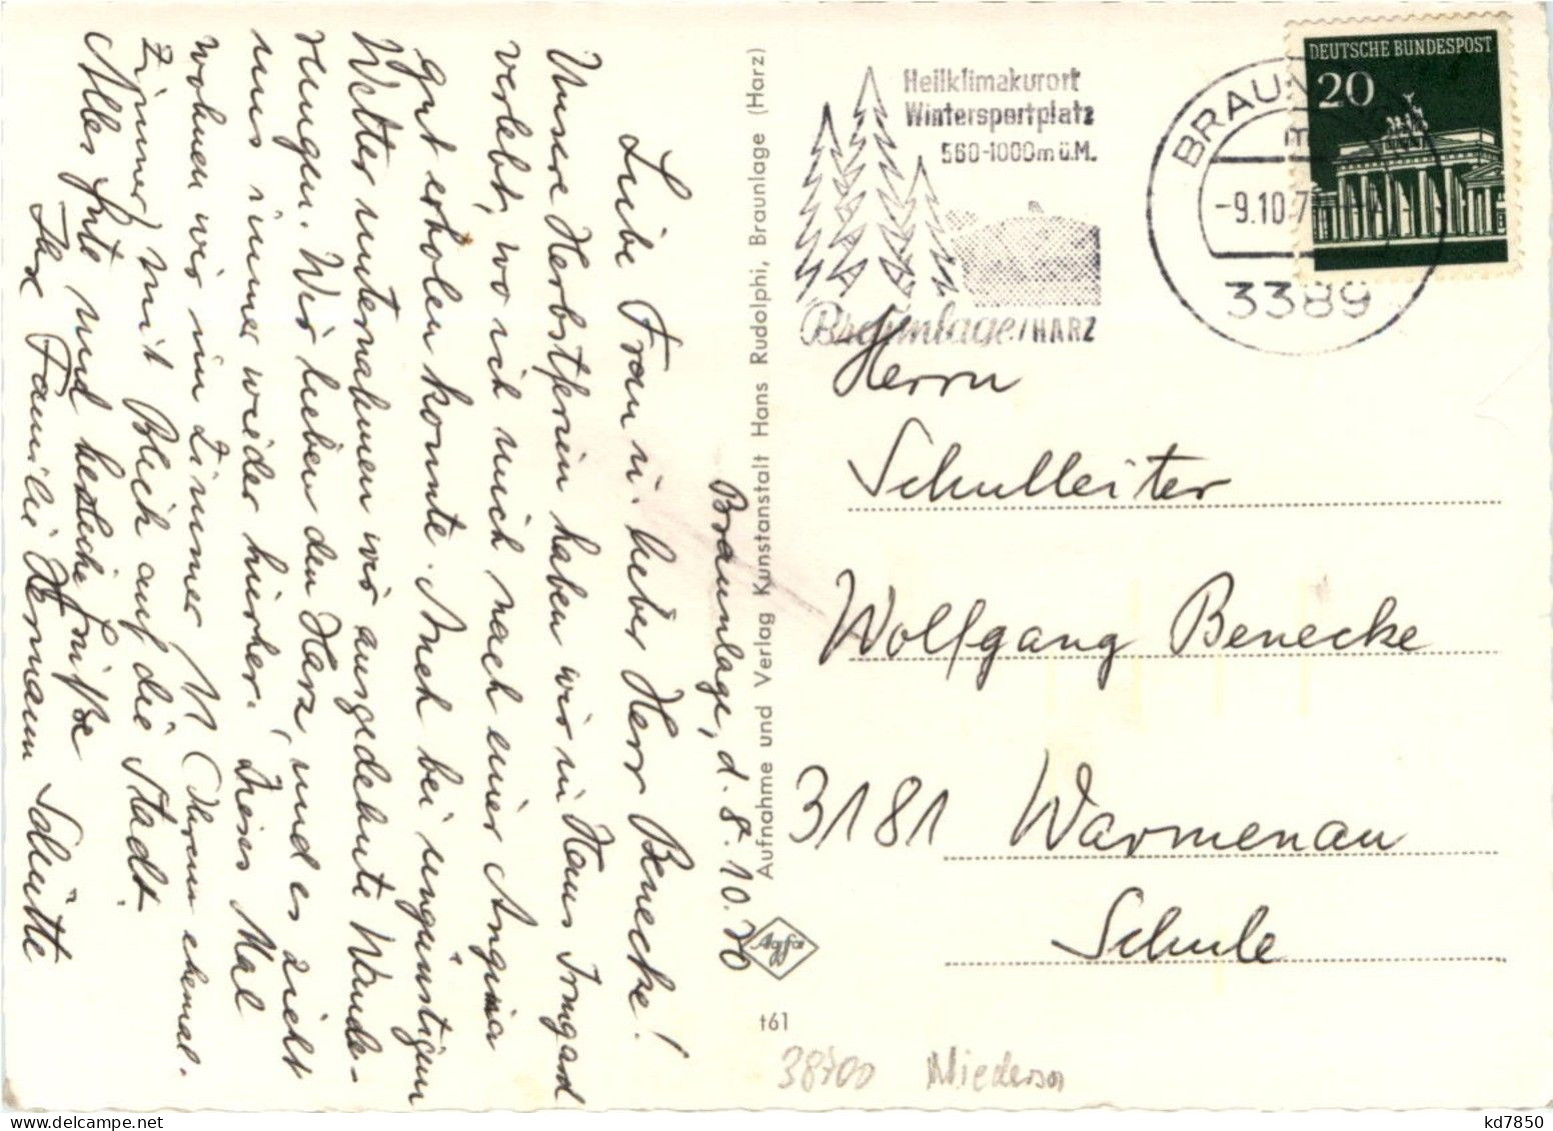 Braunlage, d. 8.10.70
Liebe Frau u. lieber Herr Benecke!
Unsere Herbstferien haben wir in Haus Irmgard
verlebt, wo ich mich nach einer Angina
gut erholen konnte. Auch bei ungünstigem
Wetter unternahmen wir ausgedehnte Wande-
rungen. Wir lieben den Harz, und es zieht
uns immer wieder hierher. Dieses Mal
wohnen wir im Zimmer 11 (Ihrem ehemal.
Zimmer) mit Blick auf die Stadt.
Alles Gute und herzliche Grüße
Ihre Familie Hermann Schütte
Aufnahme und Verlag Kunstanstalt Hans Rudolphi, Braunlage (Harz)
Agfa
t61
Heilklimakurort
Wintersportplatz
560-1000m ü.M.
Braunlage/HARZ
-9.10.7
3389
DEUTSCHE BUNDESPOST
20
Herrn
Schulleiter
Wolfgang Benecke
3181 Warmenau
Schule
38700 Niedersa
kd7850